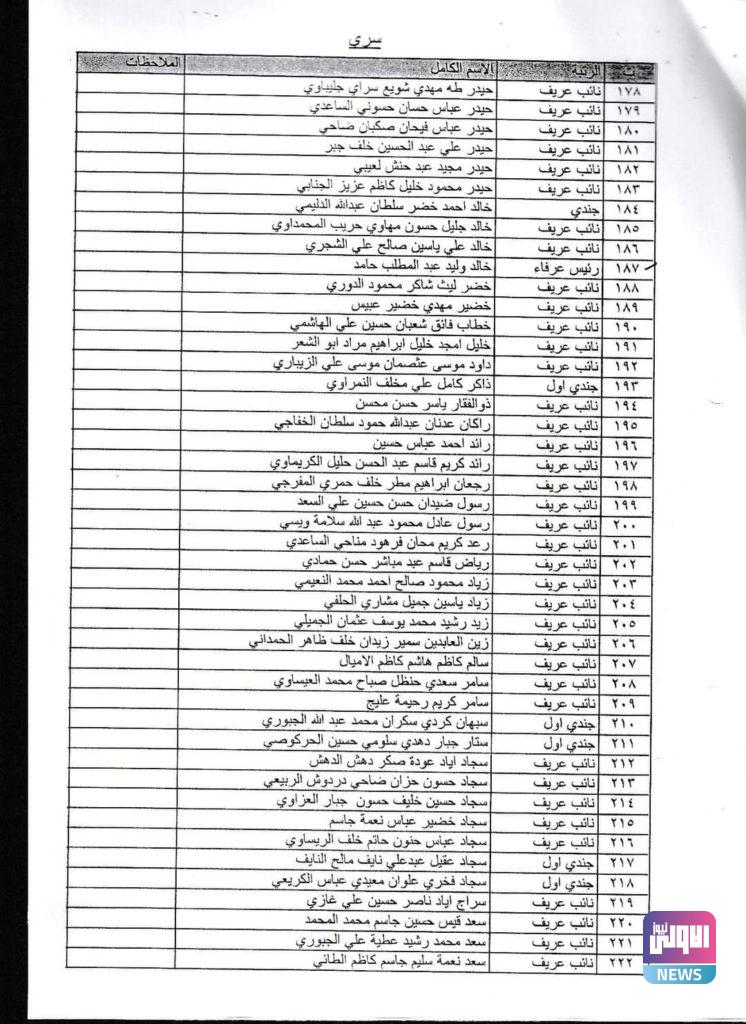 سري
ت الرتبة الاسم الكامل الملاحظات
١٧٨ نائب عريف حيدر طه مهدي شويع سراي جليباوي
١٧٩ نائب عريف حيدر عباس حسان حسوني الساعدي
١٨٠ نائب عريف حيدر عباس فيحان صكبان ضاحي
١٨١ نائب عريف حيدر علي عبد الحسين خلف جبر
١٨٢ نائب عريف حيدر مجيد عبد حنش لعيبي
١٨٣ نائب عريف حيدر محمود خليل كاظم عزيز الجنابي
١٨٤ جندي خالد احمد خضر سلطان عبدالله الدليمي
١٨٥ نائب عريف خالد جليل حسون مهاوي حريب المحمداوي
١٨٦ نائب عريف خالد علي ياسين صالح علي الشجري
١٨٧ رئيس عرفاء خالد وليد عبد المطلب حامد
١٨٨ نائب عريف خضر ليث شاكر محمود الدوري
١٨٩ نائب عريف خضير مهدي خضير عبيس
١٩٠ نائب عريف خطاب فائق شعبان حسين علي الهاشمي
١٩١ نائب عريف خليل امجد خليل ابراهيم مراد ابو الشعر
١٩٢ نائب عريف داود موسى عثصمان موسى علي الزيباري
١٩٣ جندي اول ذاكر كامل علي مخلف النمراوي
١٩٤ نائب عريف ذوالفقار ياسر حسن محسن
١٩٥ نائب عريف راكان عدنان عبدالله حمود سلطان الخفاجي
١٩٦ نائب عريف رائد احمد عباس حسين
١٩٧ نائب عريف رائد كريم قاسم عبد الحسن حليل الكريماوي
١٩٨ نائب عريف رجعان ابراهيم مطر خلف حمري المفرجي
١٩٩ نائب عريف رسول ضيدان حسن حسين علي السعد
٢٠٠ نائب عريف رسول عادل محمود عبد الله سلامة ويسي
٢٠١ نائب عريف رعد كريم محان فرهود مناحي الساعدي
٢٠٢ نائب عريف رياض قاسم عبد مباشر حسن حمادي
٢٠٣ نائب عريف زياد محمود صالح احمد محمد النعيمي
٢٠٤ نائب عريف زياد ياسين جميل مشاري الحلفي
٢٠٥ نائب عريف زيد رشيد محمد يوسف عثمان الجميلي
٢٠٦ نائب عريف زين العابدين سمير زيدان خلف ظاهر الحمداني
٢٠٧ نائب عريف سالم كاظم هاشم كاظم الاميال
٢٠٨ نائب عريف سامر سعدي حنظل صباح محمد العيساوي
٢٠٩ نائب عريف سامر كريم رحيمة عليج
٢١٠ جندي اول سبهان كردي سكران محمد عبد الله الجبوري
٢١١ جندي اول ستار جبار دهدي سلومي حسين الحركوصي
٢١٢ نائب عريف سجاد اياد عودة صكر دهش الدهش
٢١٣ نائب عريف سجاد حسون حزان ضاحي دردوش الربيعي
٢١٤ نائب عريف سجاد حسين خليف حسون جبار العزاوي
٢١٥ نائب عريف سجاد خضير عباس نعمة جاسم
٢١٦ نائب عريف سجاد عباس حنون حاتم خلف الريساوي
٢١٧ جندي اول سجاد عقيل عبدعلي نايف مالح النايف
٢١٨ جندي اول سجاد فخري علوان معيدي عباس الكريعي
٢١٩ نائب عريف سراج اياد ناصر حسين علي غازي
٢٢٠ نائب عريف سعد قيس حسين جاسم محمد المحمد
٢٢١ نائب عريف سعد محمد رشيد عطية علي الجبوري
٢٢٢ نائب عريف سعد نعمة سليم جاسم كاظم الطائي
الاولى نيوز
NEWS